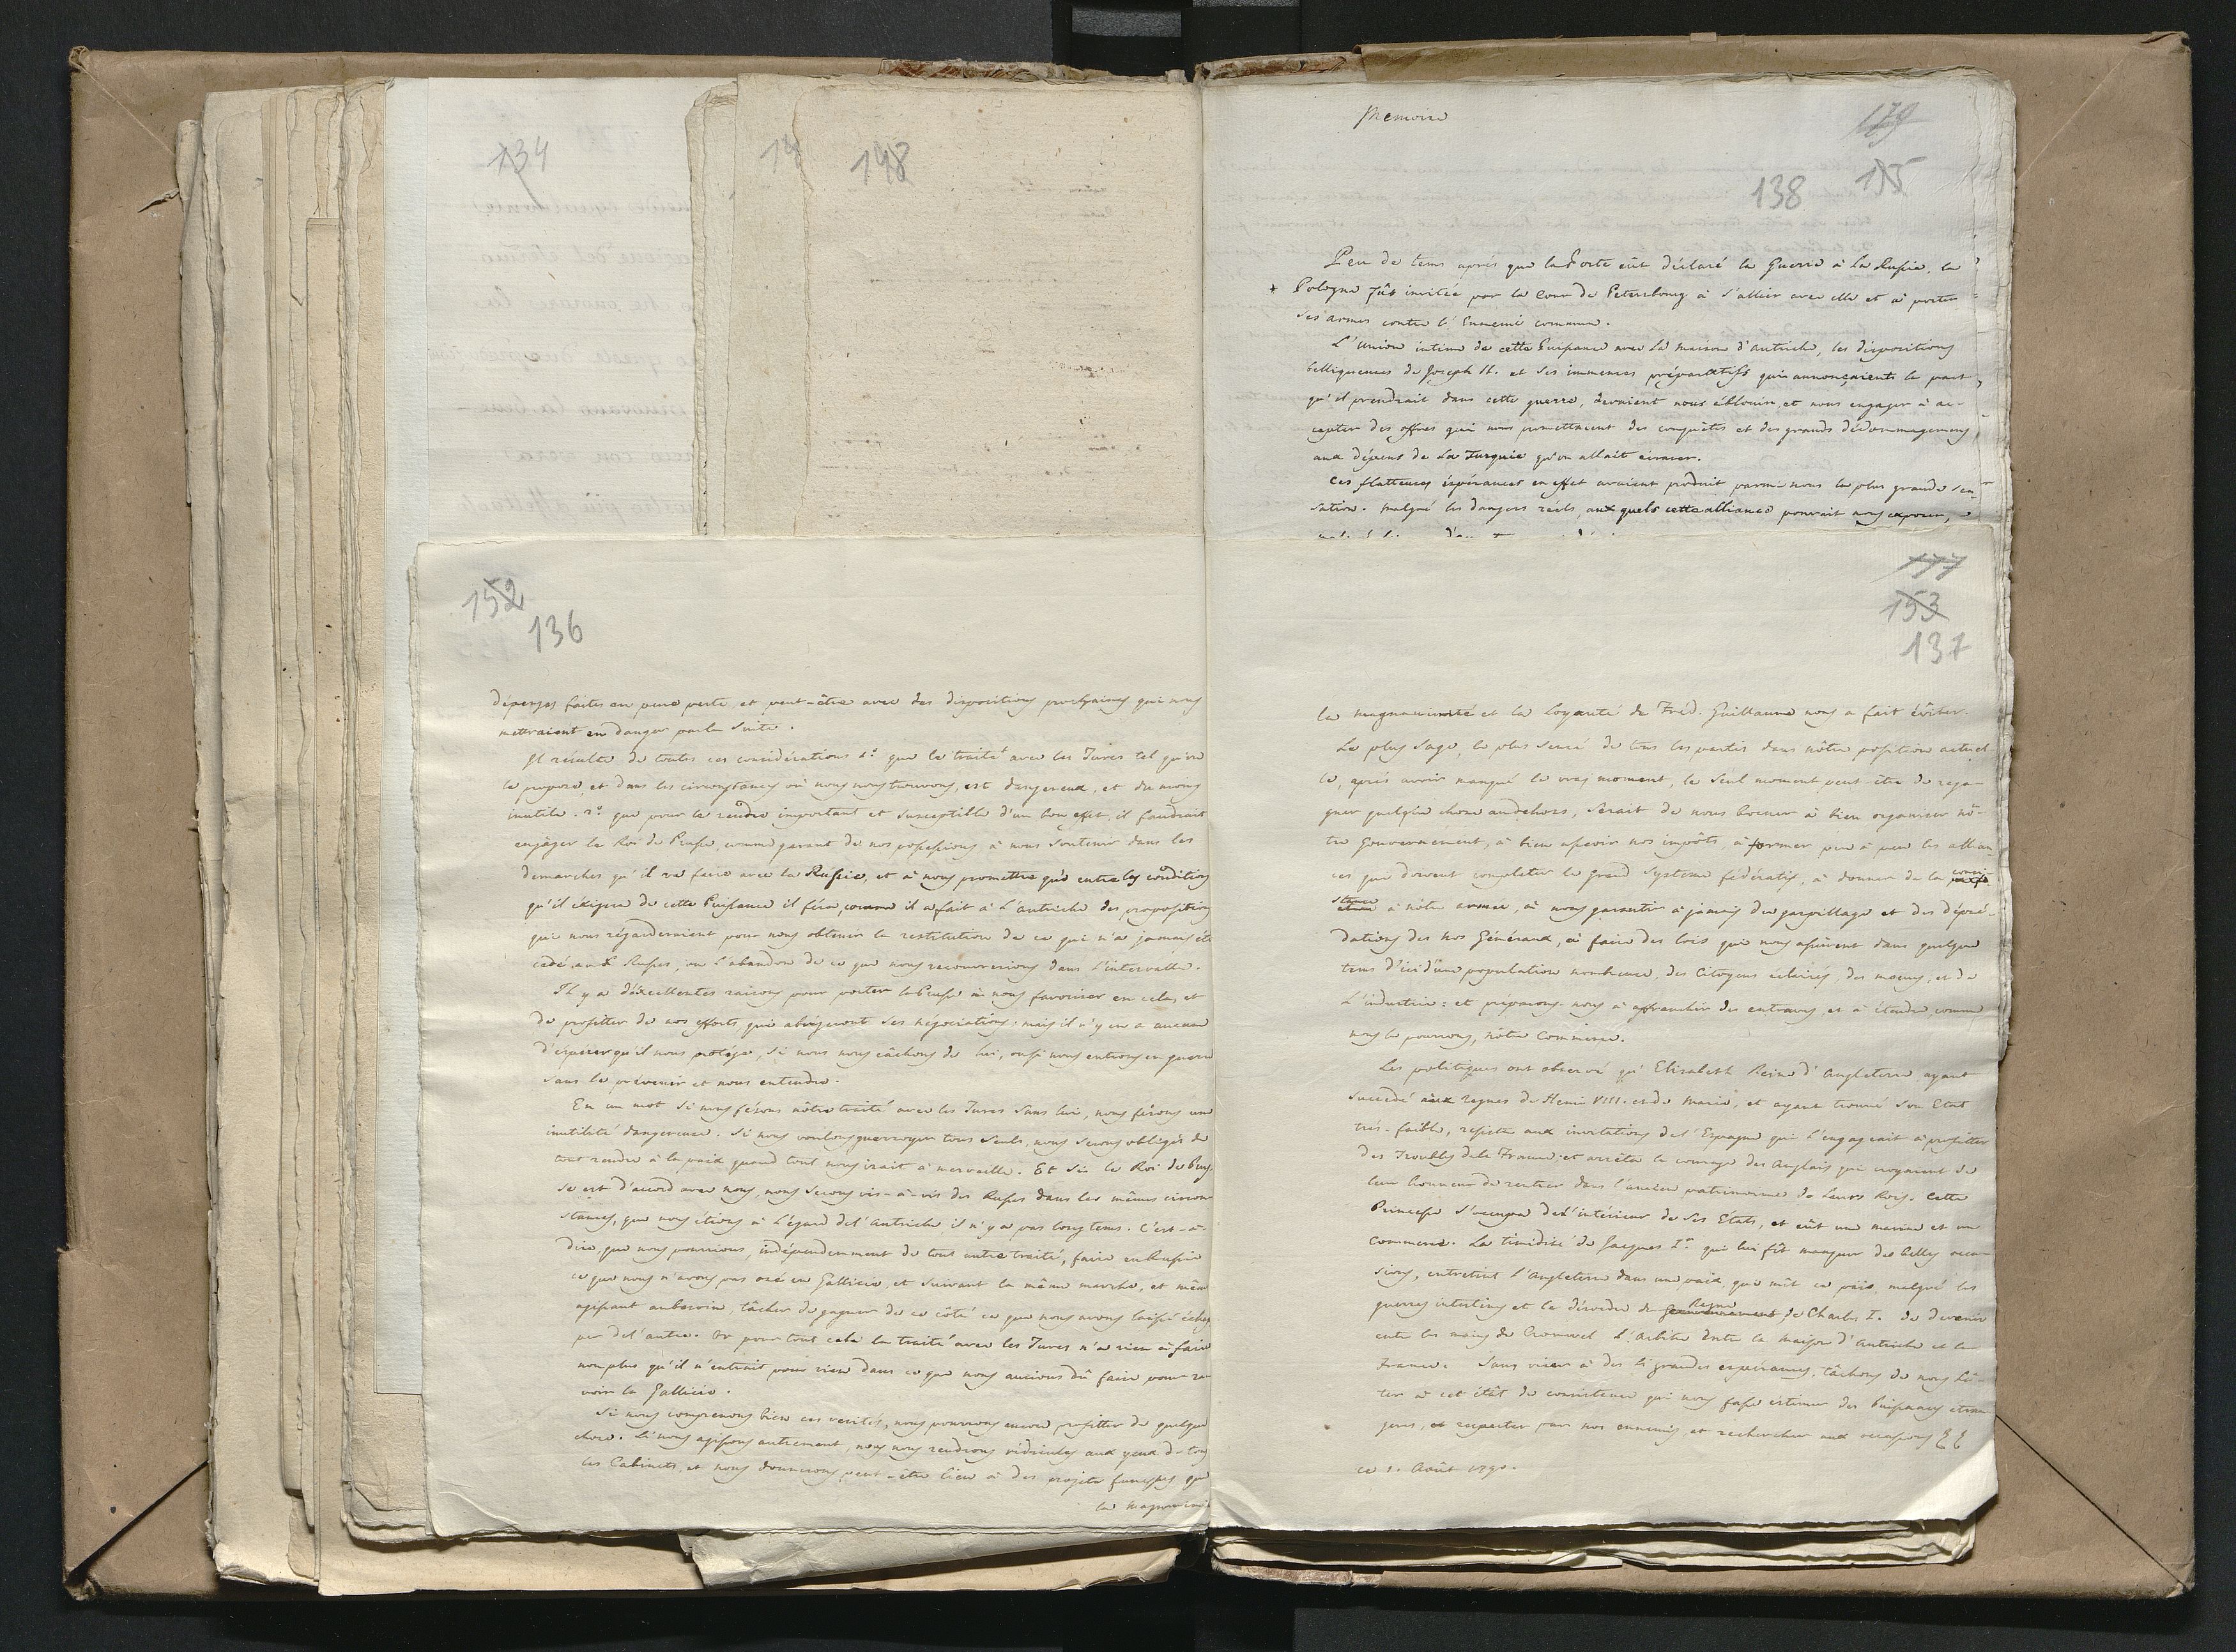 134
14
148
Memoire
179
138 155
Peu de tems après que la Porte eût déclaré la Guerre à La Russie, la
Pologne fût invitée par la Cour de Petersbourg à s'allier avec elle et à porter
ses armes contre l'Ennemi commun.
L'Union intime de cette Puissance avec la maison d'Autriche, les dispositions
belliqueuses de Joseph II. et ses immenses préparatifs qui annonçaients la part
qu'il prendrait dans cette guerre, devaient nous éblouir, et nous engager à ac-
cepter des offres qui nous promettaient des conquêtes et des grands dédommagemens
aux dépens de La Turquie qu'on allait écraser.
Ces flatteuses éspérances en effet avaient produit parmi nous la plus grande sen-
sation. Malgré les dangers réels, aux quels cette alliance pouvait nous exposer,
152
136
dépenses faites en pure perte, et peut-être avec des dispositions prochaines qui nous
mettraient en danger par la suite.
Il résulte de toutes ces considérations 1.º que le traité avec les Turcs tel qu'on
le propose, et dans les circonstances où nous nous trouvons, est dangereux, et du moins
inutile. 2.º que pour le rendre important et susceptible d'un bon effet, il faudrait
engager le Roi de Prusse, comme garant de nos possessions à nous soutenir dans les
demarches qu'il va faire avec la Russie, et à nous promettre qu'entre les conditions
qu'il éxigera de cette Puissance il fera, comme il a fait à l'Autriche des propositions
qui nous régarderaient pour nous obtenir la restitution de ce qui n'a jamais été
cedé aux Russes, ou l'abandon de ce que nous recouvrerions dans l'intervalle.
Il y a d'éxcellentes raisons pour porter la Prusse à nous favoriser en cela, et
de profitter de nos efforts, qui abrégeront ses négociations; mais il n'y en a aucune
d'espérer qu'il nous protége, si nous nous câchons de lui, ou si nous entrons en guerre
sans le prévenir et nous entendre.
En un mot si nous fésons nôtre traité avec les Turcs sans lui, nous férons une
inutilité dangereuse. Si nous voulons guerroyer tous seuls, nous serons obligés de
tout rendre à la paix quand tout nous irait à merveille. Et si le Roi de Prus-
se est d'accord avec nous, nous serons vis-à-vis des Russes dans les mêmes circon
stances, que nous étions à l'égard de l'Autriche il n'y a pas long tems. C'est-à-
dire, que nous pourrions, indépendemment de tout autre traité, faire en Russie
ce que nous n'avons pas osé en Gallicie, et suivant la même marche, et même
agissant au besoin, tâcher de gagner de ce côté ce que nous avons laissé échap
per de l'autre. Or pour tout cela le traité avec les Turcs n'a rien à faire
non plus qu'il n'entrait pour rien dans ce que nous aurions dû faire pour ra
voir la Gallicie.
Si nous comprenons bien ces verités, nous pourrons encore profitter de quelque
chose. Si nous agissons autrement, nous nous rendrons ridicules aux yeux de tous
les Cabinets, et nous donnerons peut-être lieu à des projets funestes que
la magnanimi
177
153
137
la magnanimité et la Loyauté de Fréd. Guillaume nous a fait éviter.
Le plus sage, le plus sensé de tous les partis dans nôtre position actuel
le, après avoir manqué le vrai moment, le seul moment peut-être de rega-
gner quelque chose audehors, serait de nous borner à bien organiser nô-
tre Gouvernement, à bien asseoir nos impôts, à former peu à peu les allian
ces qui doivent completer le grand Systeme fédératif, à donner de la consi-
stance à nôtre armée, à nous garantir à jamais du gaspillage et des dépré-
dations des nos Généraux, à faire des lois qui nous assurent dans quelque
tems d'ici d'une population nombreuse, des Citoyens eclairés, des moeurs, et de
L'industrie: et préparons-nous à affranchir des entraves, et à étendre, comme
nous le pourrons, nôtre Commerce.
Les politiques ont observé qu'Elisabeth Reine d'Angleterre ayant
succedé aux regnes de Henri VIII. et de Marie, et ayant trouvé son Etat
très-faible, resista aux invitations de l'Espagne qui l'engageait à profitter
des Troubles de la France: et arrêta le courage des Anglais qui croyaient de
leur honneur de rentrer dans l'ancien patrimoine de leurs Rois. Cette
Princesse s'occupa de l'intérieur de ses Etats, et eût une marine et un
Commerce. La timidité de Jacques I.er qui lui fît manquer de belles occa-
sions, entretint l'Angleterre dans une paix, qui mît ce païs, malgré les
guerres intestines et le désordre de Regne de Charles I. de devenir
entre les mains de Cromwel l'Arbitre Entre la maison d'Autriche et la
France. Sans viser à des si grandes espérances, tâchons de nous hâ-
ter à cet état de consistence qui nous fasse estimer des Puissances etran
geres, et respecter par nos ennemis, et rechercher aux occasions
ce 1. Août 1790.